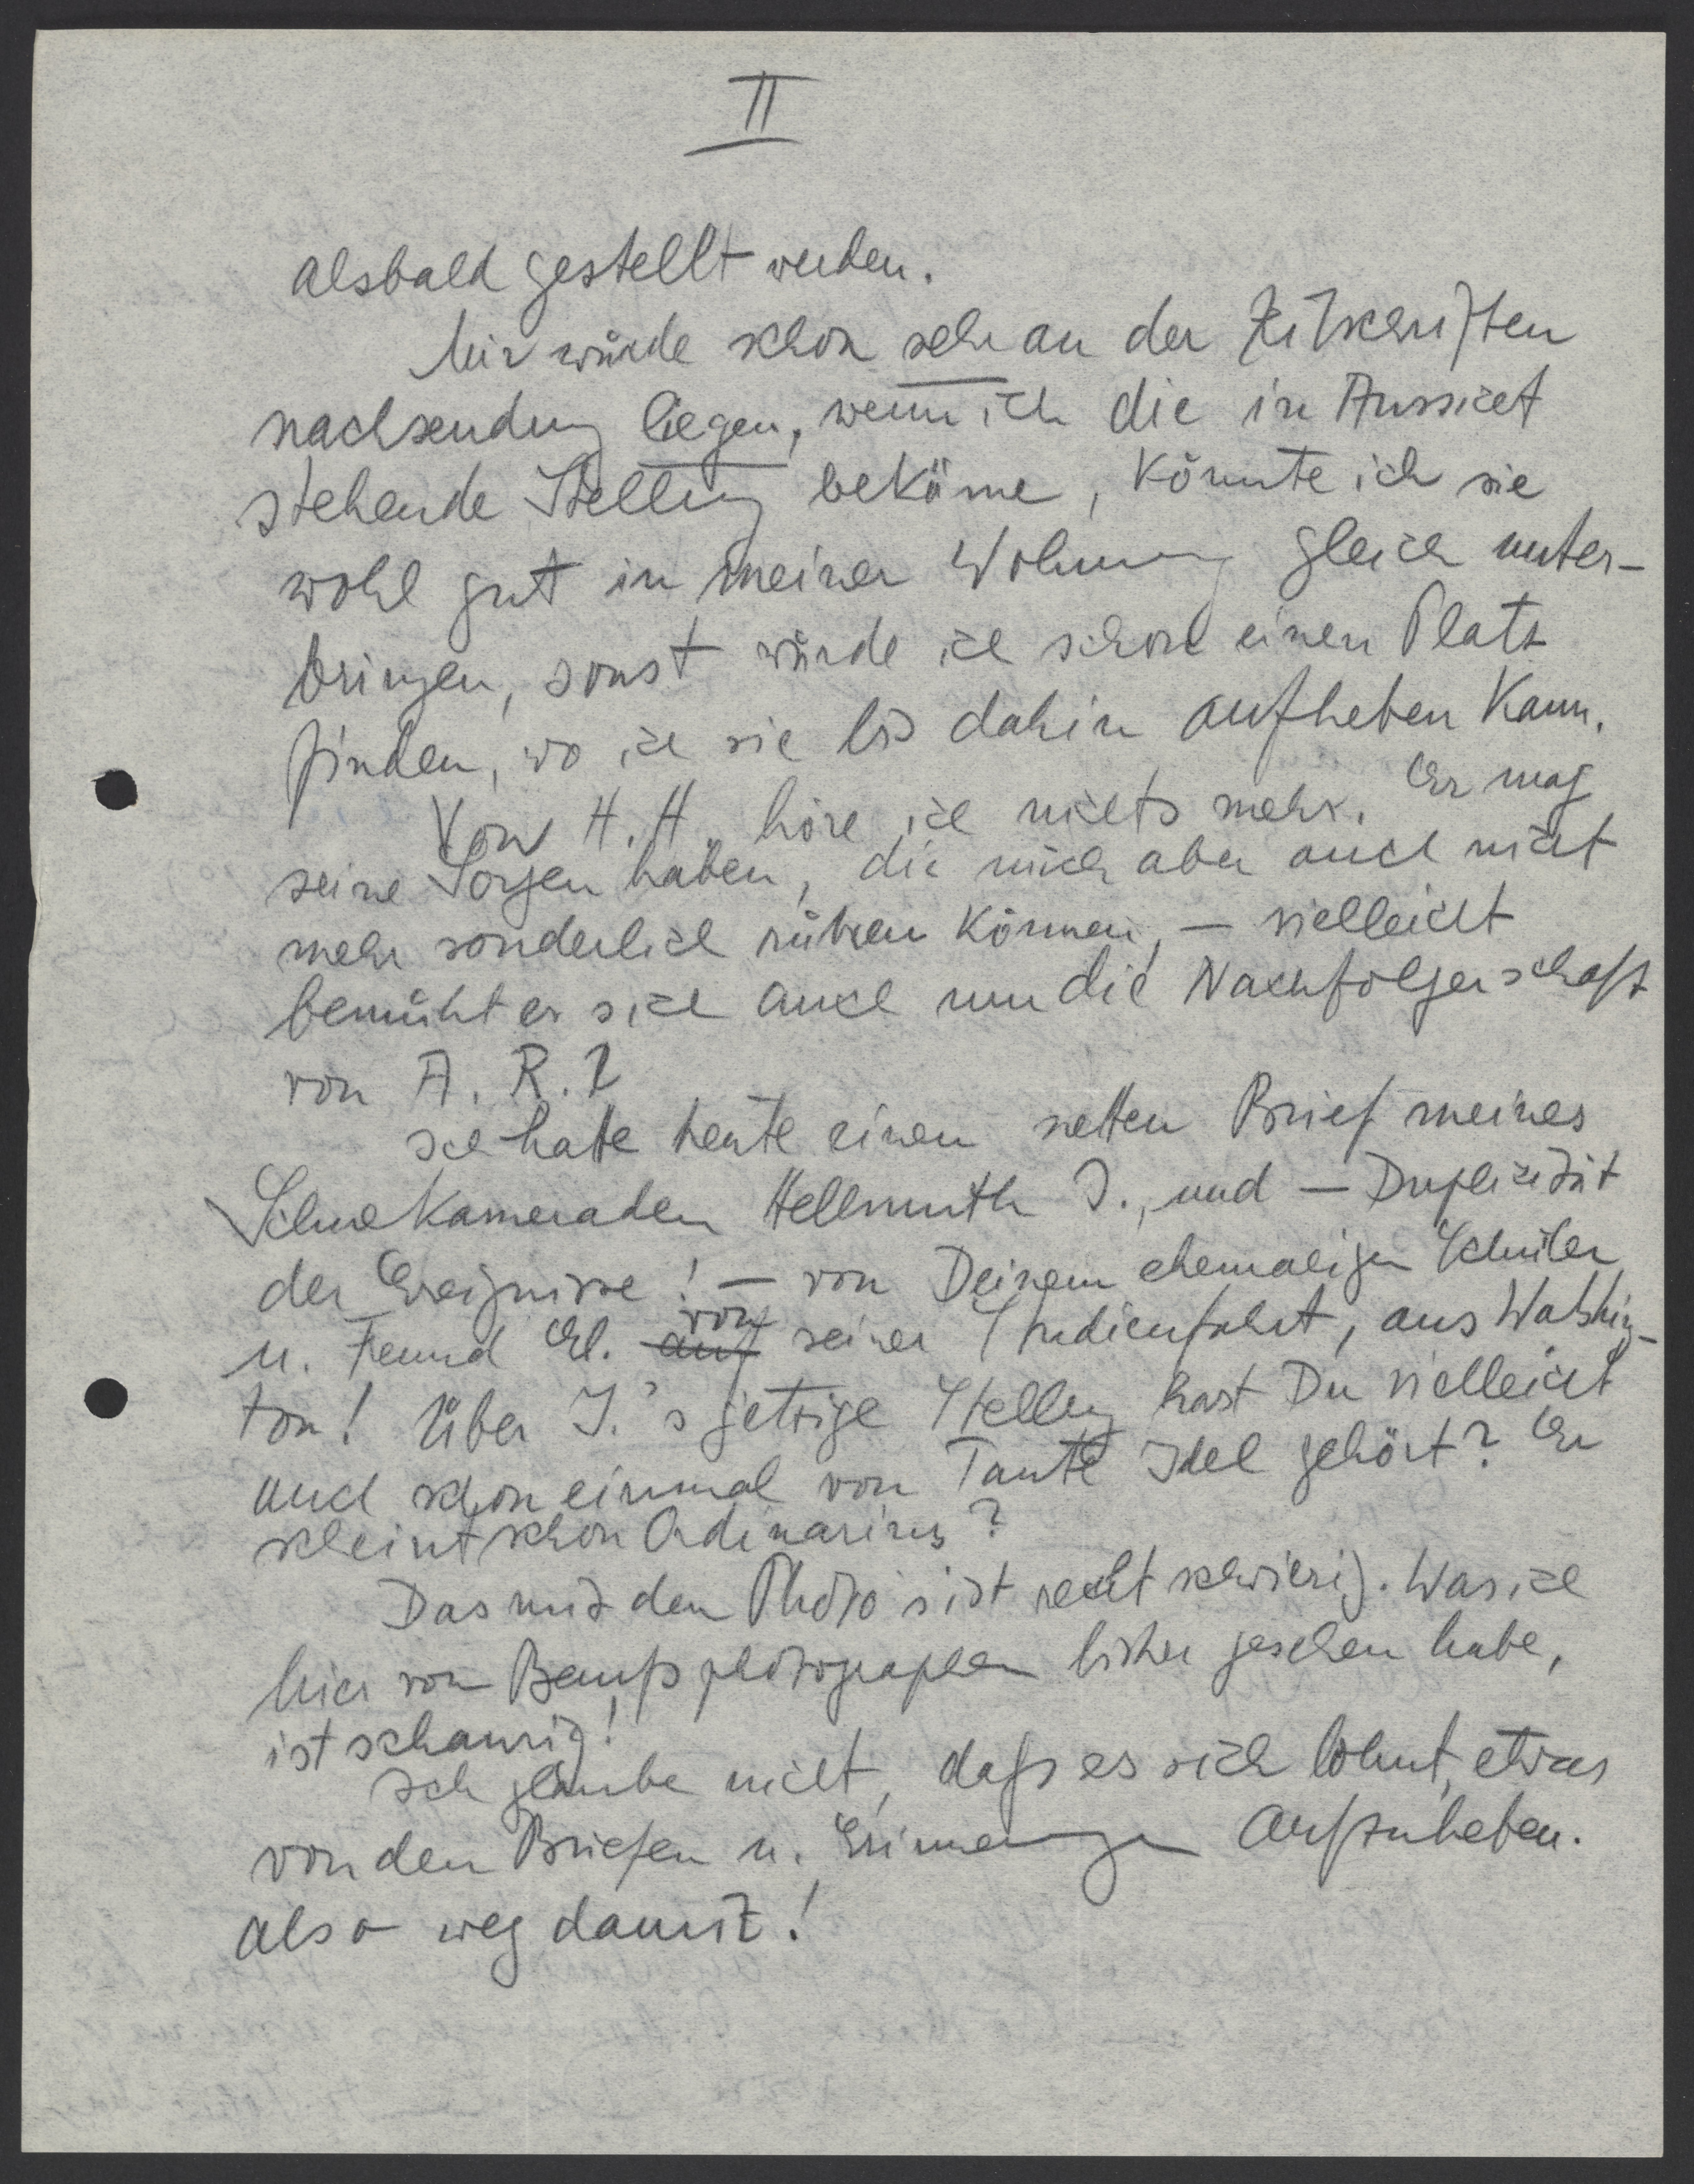 II
alsbald gestellt werden.
Mir würde schon sehr an der Zeitschriften
nachsendung liegen, wenn ich die in Aussicht
stehende Stellung bekäme, könnte ich sie
wohl gut in meiner Wohnung gleich unter-
bringen, sonst würde ich schon einen Platz
finden, wo ich sie bis dahin aufheben kann.
Von H. H. höre ich nichts mehr. Er mag
seine Sorgen haben, die mich aber auch nicht
mehr sonderlich rühren können, – vielleicht
bemüht er sich auch um die Nachfolgerschaft
von A. R.?
Ich hatte heute einen netten Brief meines
Schulkameraden Hellmuth J., und – Duplizität
der Ereignisse! – von Deinem ehemaligen Schüler
u. Freund El. auf von seiner Studienfahrt, aus Washing-
ton! Über J.'s jetzige Stellung hast Du vielleicht
auch schon einmal von Tante Idel gehört? Er
scheint schon Ordinarius?
Das mit den Photo's ist recht schwierig. Was ich
hier von Berufsphotographen bisher gesehen habe,
ist schaurig!
Ich glaube nicht, dass es sich lohnt, etwas
von den Briefen u. Erinnerungen aufzuheben.
also weg damit!